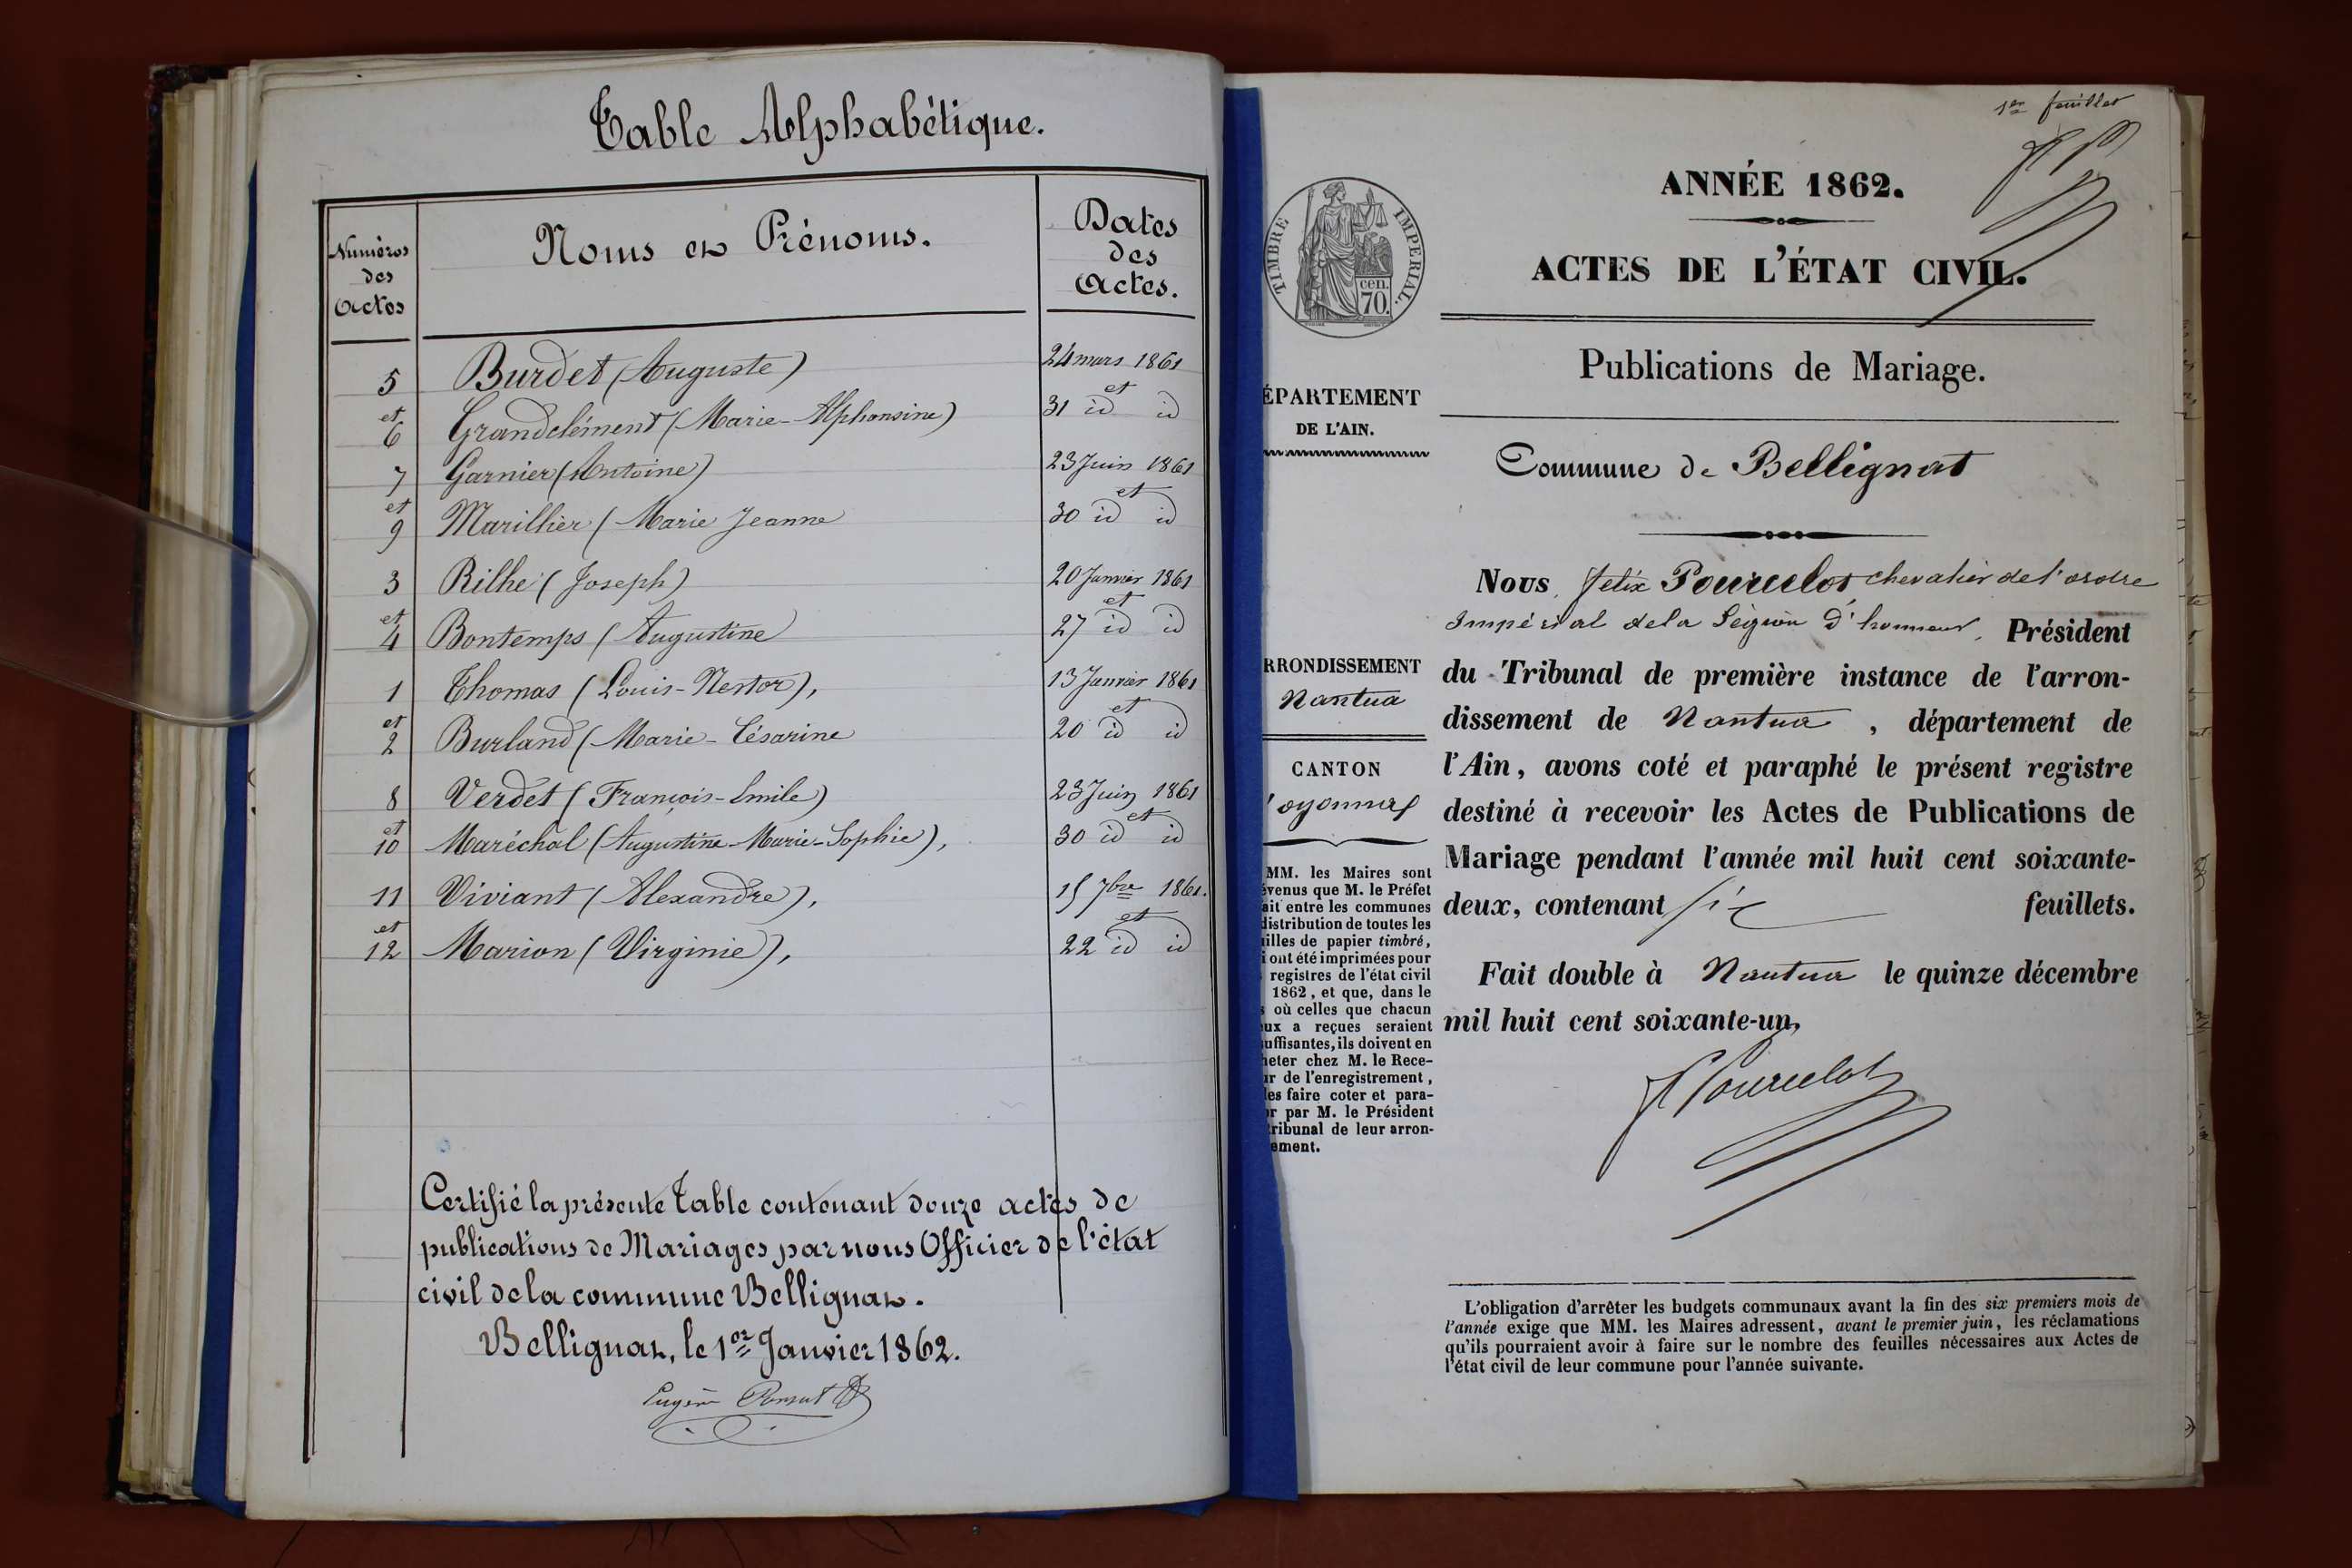 Table Alphabétique.
Numéros
des
Actes
Noms et Prénoms.
Dates
des
Actes.
5 Burdet (Auguste) 24 mars 1861
et et
6 Grandclément (Marie-Alphonsine) 31 id id
7 Garnier (Antoine) 23 Juin 1861
et et
9 Marillier (Marie Jeanne 30 id id
3 Rilhe (Joseph) 20 Janvier 1861
et et
4 Bontemps (Augustine 27 id id
1 Thomas (Louis-Nestor), 13 Janvier 1861
et et
2 Burland (Marie-Césarine 20 id id
8 Verdet (François-Emile) 23 Juin 1861
et et
10 Maréchal (Augustine-Marie-Sophie), 30 id id
11 Viviant (Alexandre), 15 7bre 1861.
et et
12 Marion (Virginie), 22 id id
Certifié la présente Table contenant douze actes de
publications de Mariages par nous Officier de l'état
civil de la commune Bellignat.
Bellignat, le 1er Janvier 1862.
Eugène
1er feuillet
ANNÉE 1862.
ACTES DE L'ÉTAT CIVIL.
TIMBRE IMPERIAL.
cen.
70.
Publications de Mariage.
ÉPARTEMENT
DE L'AIN.
Commune de Bellignat
Nous, félix Pourcelot, chevalier de l'ordre
Impérial de la Légion d'honneur, Président
du Tribunal de première instance de l'arron-
dissement de Nantua, département de
l'Ain, avons coté et paraphé le présent registre
destiné à recevoir les Actes de Publications de
Mariage pendant l'année mil huit cent soixante-
deux, contenant six feuillets.
Fait double à Nantua le quinze décembre
mil huit cent soixante-un,
F Pourcelot
RRONDISSEMENT
Nantua
CANTON
oyonnax
MM. les Maires sont
évenus que M. le Préfet
ait entre les communes
distribution de toutes les
illes de papier timbré,
i ont été imprimées pour
registres de l'état civil
1862, et que, dans le
s où celles que chacun
ux a reçues seraient
uffisantes, ils doivent en
heter chez M. le Rece-
ur de l'enregistrement,
les faire coter et para-
er par M. le Président
tribunal de leur arron-
ement.
L'obligation d'arrêter les budgets communaux avant la fin des six premiers mois de
l'année exige que MM. les Maires adressent, avant le premier juin, les réclamations
qu'ils pourraient avoir à faire sur le nombre des feuilles nécessaires aux Actes de
l'état civil de leur commune pour l'année suivante.